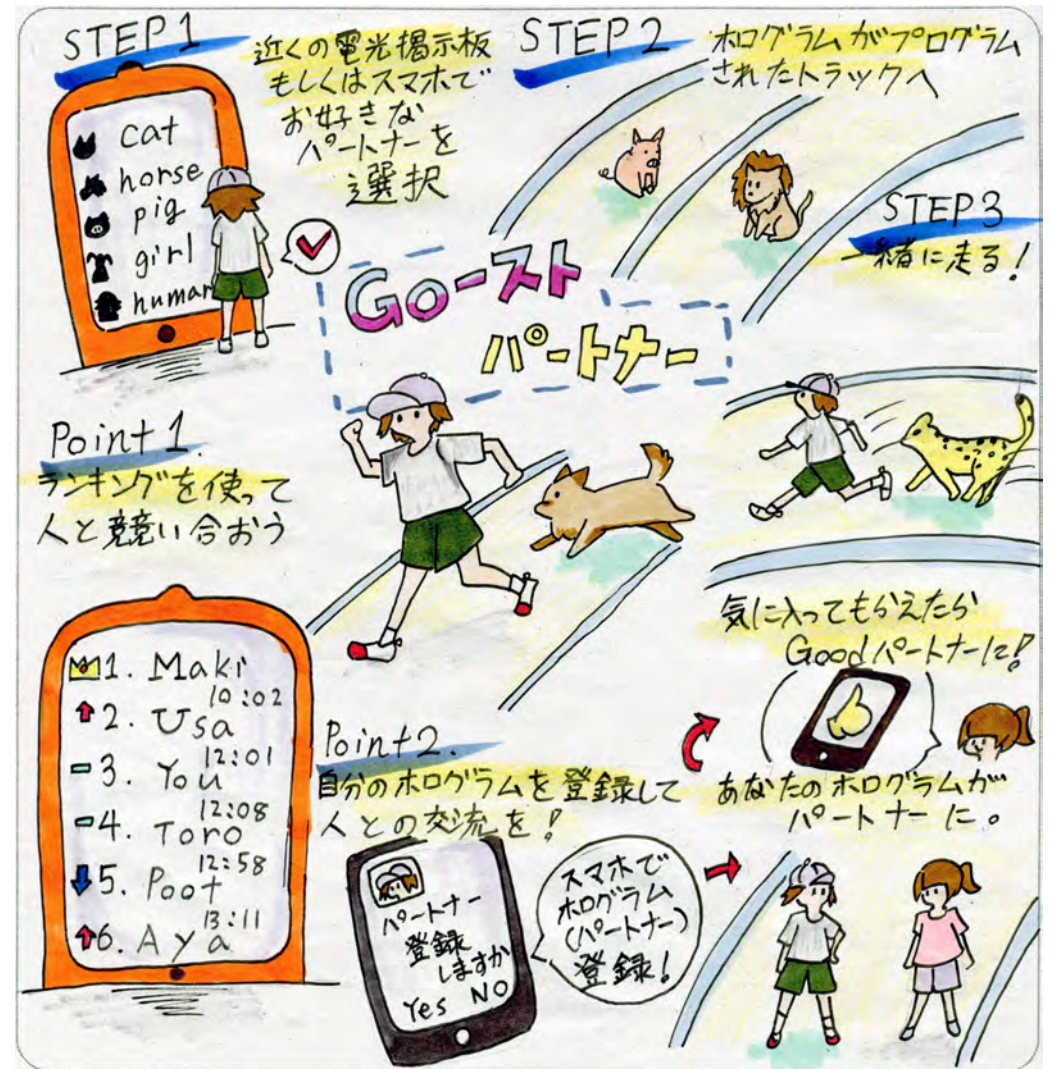 STEP1
近くの電光掲示板
もしくはスマホで
お好きな
パートナーを
選択
cat
horse
pig
girl
human
STEP2
ホログラムがプログラム
されたトラックへ
STEP3
一緒に走る!
Goースト
パートナー
Point1.
ランキングを使って
人と競い合おう
1. Maki
10:02
2. Usa
12:01
3. You
12:08
4. Toro
12:58
5. Poot
13:11
6. Aya
Point2.
自分のホログラムを登録して
人との交流を!
パートナー
登録
しますか
Yes NO
スマホで
ホログラム
(パートナー)
登録!
あなたのホログラムが
パートナーに。
気に入ってもらえたら
Goodパートナーに!